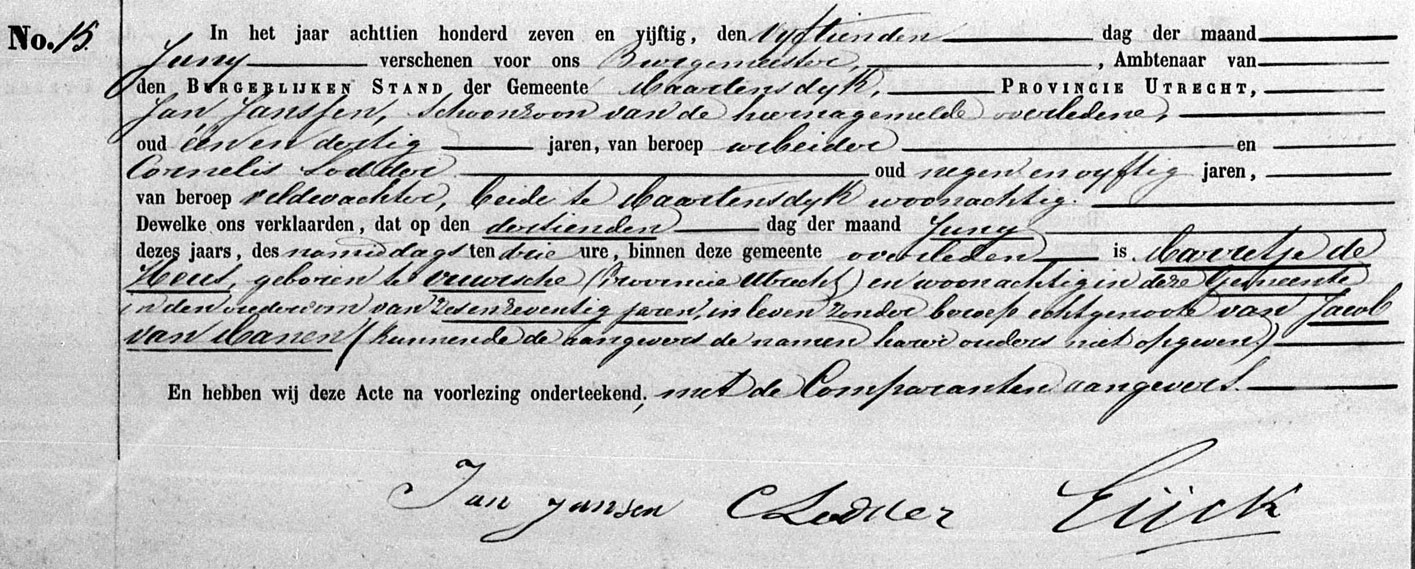 No. 15.
In het jaar achttien honderd zeven en vijftig, den vyftienden dag der maand
Juny verschenen voor ons Burgemeester, , Ambtenaar van
den BURGERLIJKEN STAND der Gemeente Maartensdyk, PROVINCIE UTRECHT,
Jan Janssen, schoonzoon van de hiernagemelde overledene,
oud één en dertig jaren, van beroep arbeider en
Cornelis Lodder oud negen en vyftig jaren,
van beroep veldwachter, beide te Maartensdyk woonachtig.
Dewelke ons verklaarden, dat op den dertienden dag der maand Juny
dezes jaars, des namiddags ten drie ure, binnen deze gemeente overleden is Marretje de
Heus, geboren te (Provincie Utrecht) en woonachtig in deze Gemeente
in den ouderdom van zes en zeventig jaren, in leven zonder beroep echtgenoote van Jacob
van Manen (kunnende de aangevers de namen harer ouders niet opgeven.)
En hebben wij deze Acte na voorlezing onderteekend, met de Comparanten aangevers.
Jan Jansen C Lodder Eijck